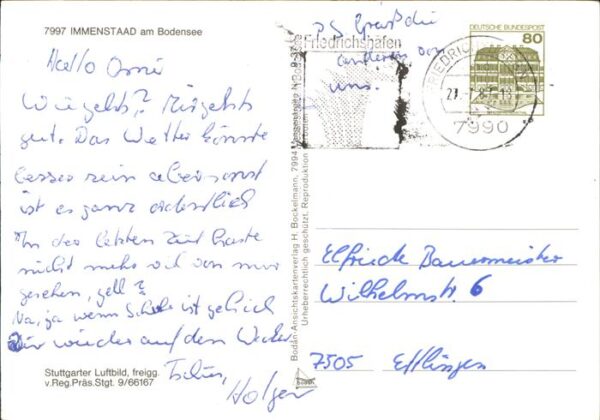 7997 IMMENSTAAD am Bodensee
Hallo Omi
Wie gehts? Mir gehts
gut. Das Wetter könnte
besser sein aber sonst
ist es ganz ordentlich
In der letzten Zeit haste
nicht mehr viel von mir
gesehen, gell?
Na, ja wenn Schule ist geh ich
dir wieder auf den Wecker
Tschüs, Holger
Stuttgarter Luftbild, freigg.
v.Reg.Präs.Stgt. 9/66167
PS Grüß die
anderen von
uns.
Friedrichshafen
DEUTSCHE BUNDESPOST
80
7990
Bodan-Ansichtskartenverlag H. Bockelmann, 7994
Urheberrechtlich geschützt. Reproduktion
Elfriede Bauermeister
Wilhelmstr. 6
7505 Ettlingen